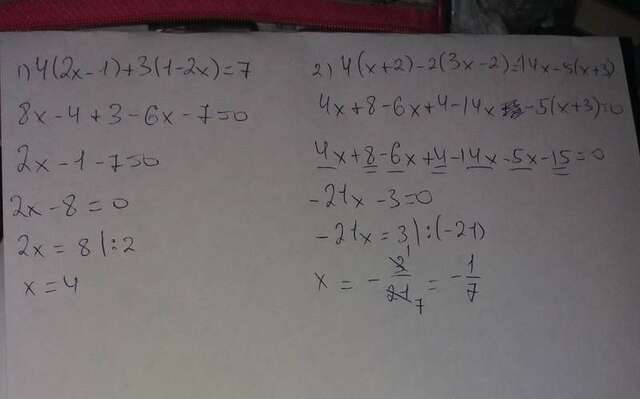 1) 4(2x-1)+3(1-2x)=7
8x-4+3-6x-7=0
2x-1-7=0
2x-8=0
2x=8 |:2
x=4
2) 4(x+2)-2(3x-2)=14x-5(x+3)
4x+8-6x+4-14x-5(x+3)=0
4x+8-6x+4-14x-5x-15=0
-21x-3=0
-21x=3 |:(-21)
x = -3/21 = -1/7
1
7